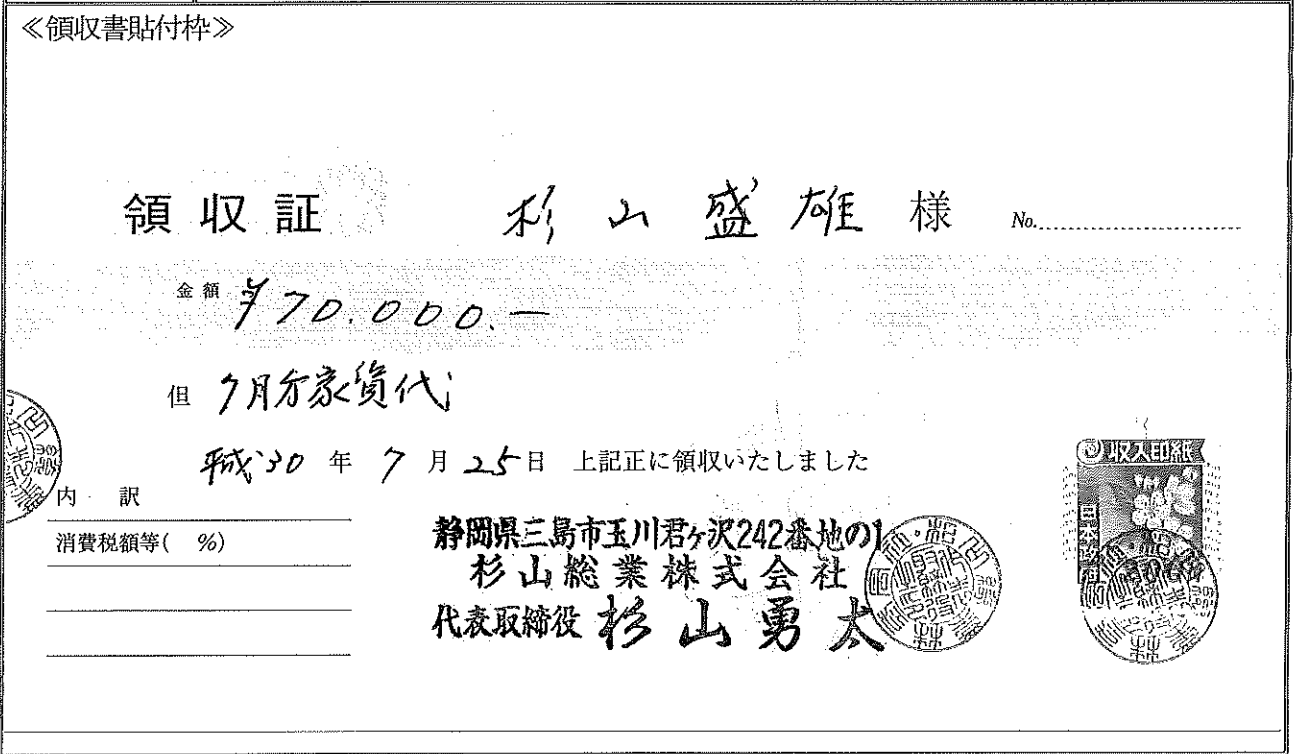 ≪領収書貼付枠≫
領収証 杉山盛雄 様 No.
金額 ¥70.000.—
但 7月分家賃代
平成30年 7月25日 上記正に領収いたしました
内訳
消費税額等( %)
静岡県三島市玉川君ヶ沢242番地の1
杉山総業株式会社
代表取締役 杉山勇太
収入印紙
日本政府